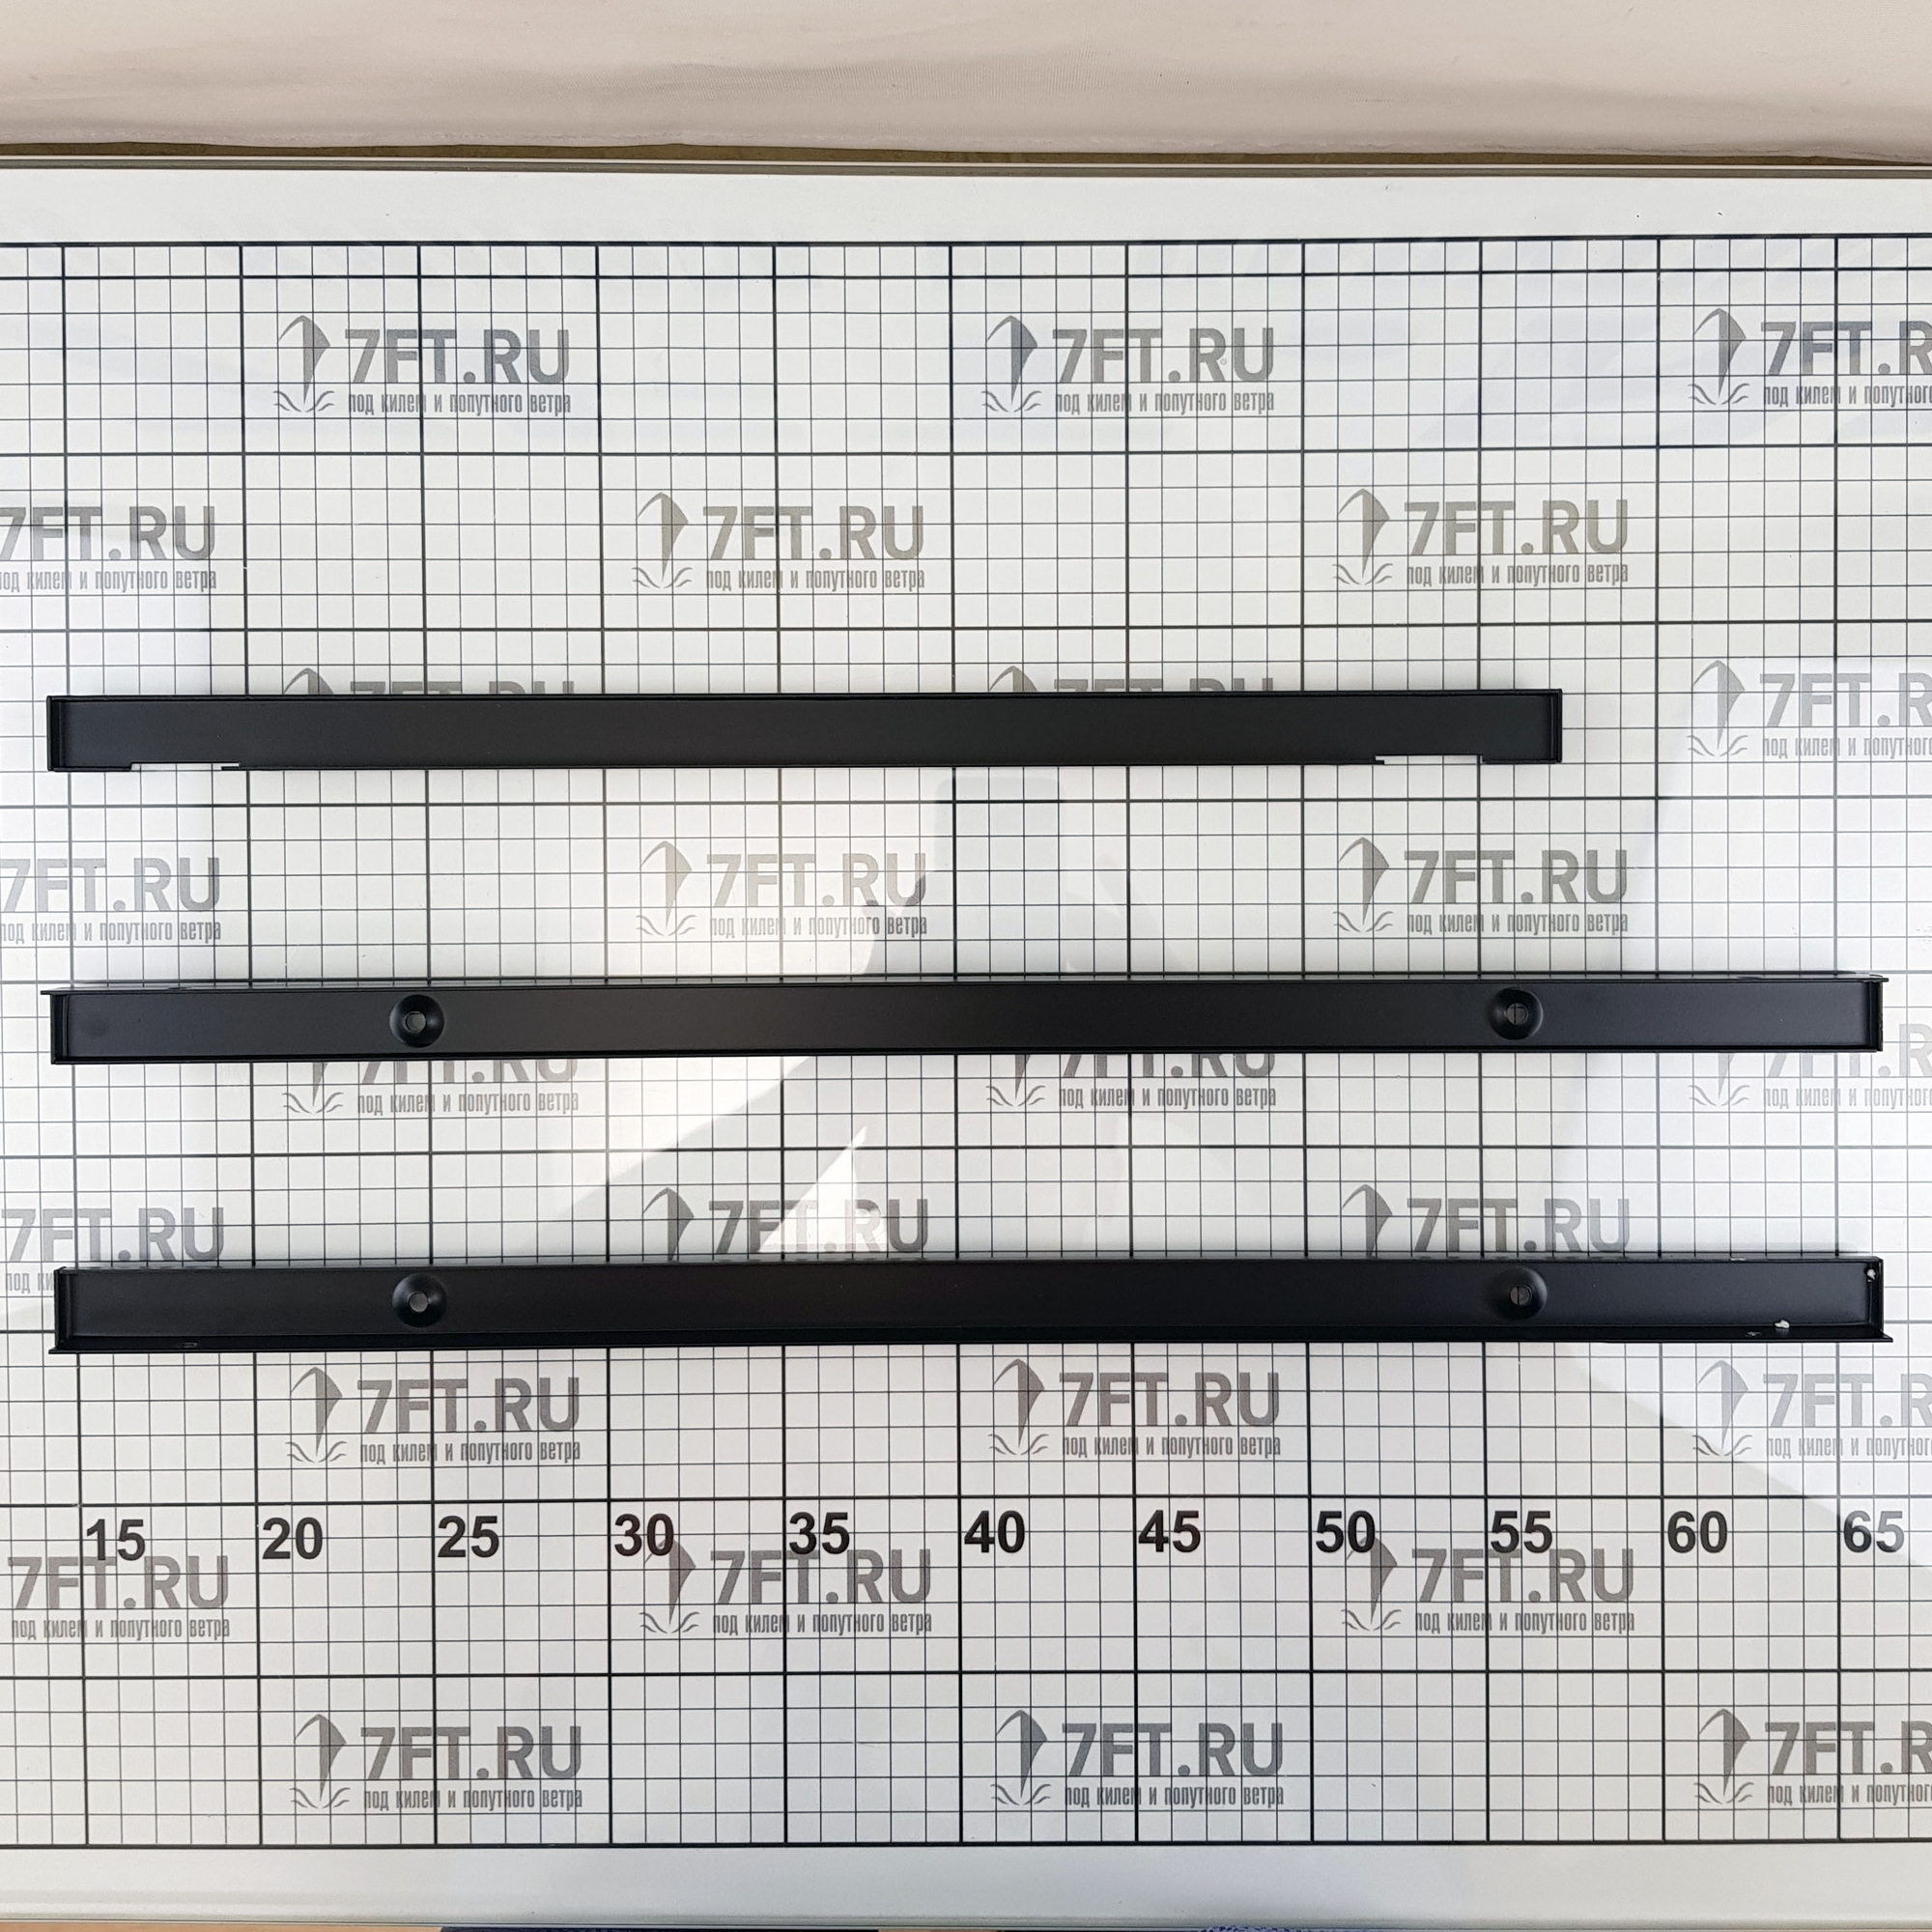 7FT.RU
под килем и попутного ветра
7FT.RU
под килем и попутного ветра
7FT.R
под килем и попутног
7FT.RU
под килем и попутного ветра
7FT.RU
под килем и попутного ветра
7FT.RU
под килем и попутного ветра
7FT.R
под килем и попутног
7FT.RU
под килем и попутного ветра
7FT.RU
под килем и попутного ветра
7FT.RU
под килем и попутного ветра
7FT.RU
под килем и попутного ветра
7FT.RU
под килем и попутного ветра
под килем и попутног
7FT.RU
под ки
7FT.RU
7FT.RU
7FT.RU
под килем и попутного ветра
7FT.RU
под килем и попутного ветра
7FT.R
под килем и попутног
15 20 25 30 35 40 45 50 55 60 65
7FT.RU
под килем и попутного ветра
7FT.RU
под килем и попутного ветра
7FT.RU
под килем и попутного ветра
7FT.RU
под килем и попутного ветра
7FT.RU
под килем и попутного ветра
7FT.R
под килем и попутног